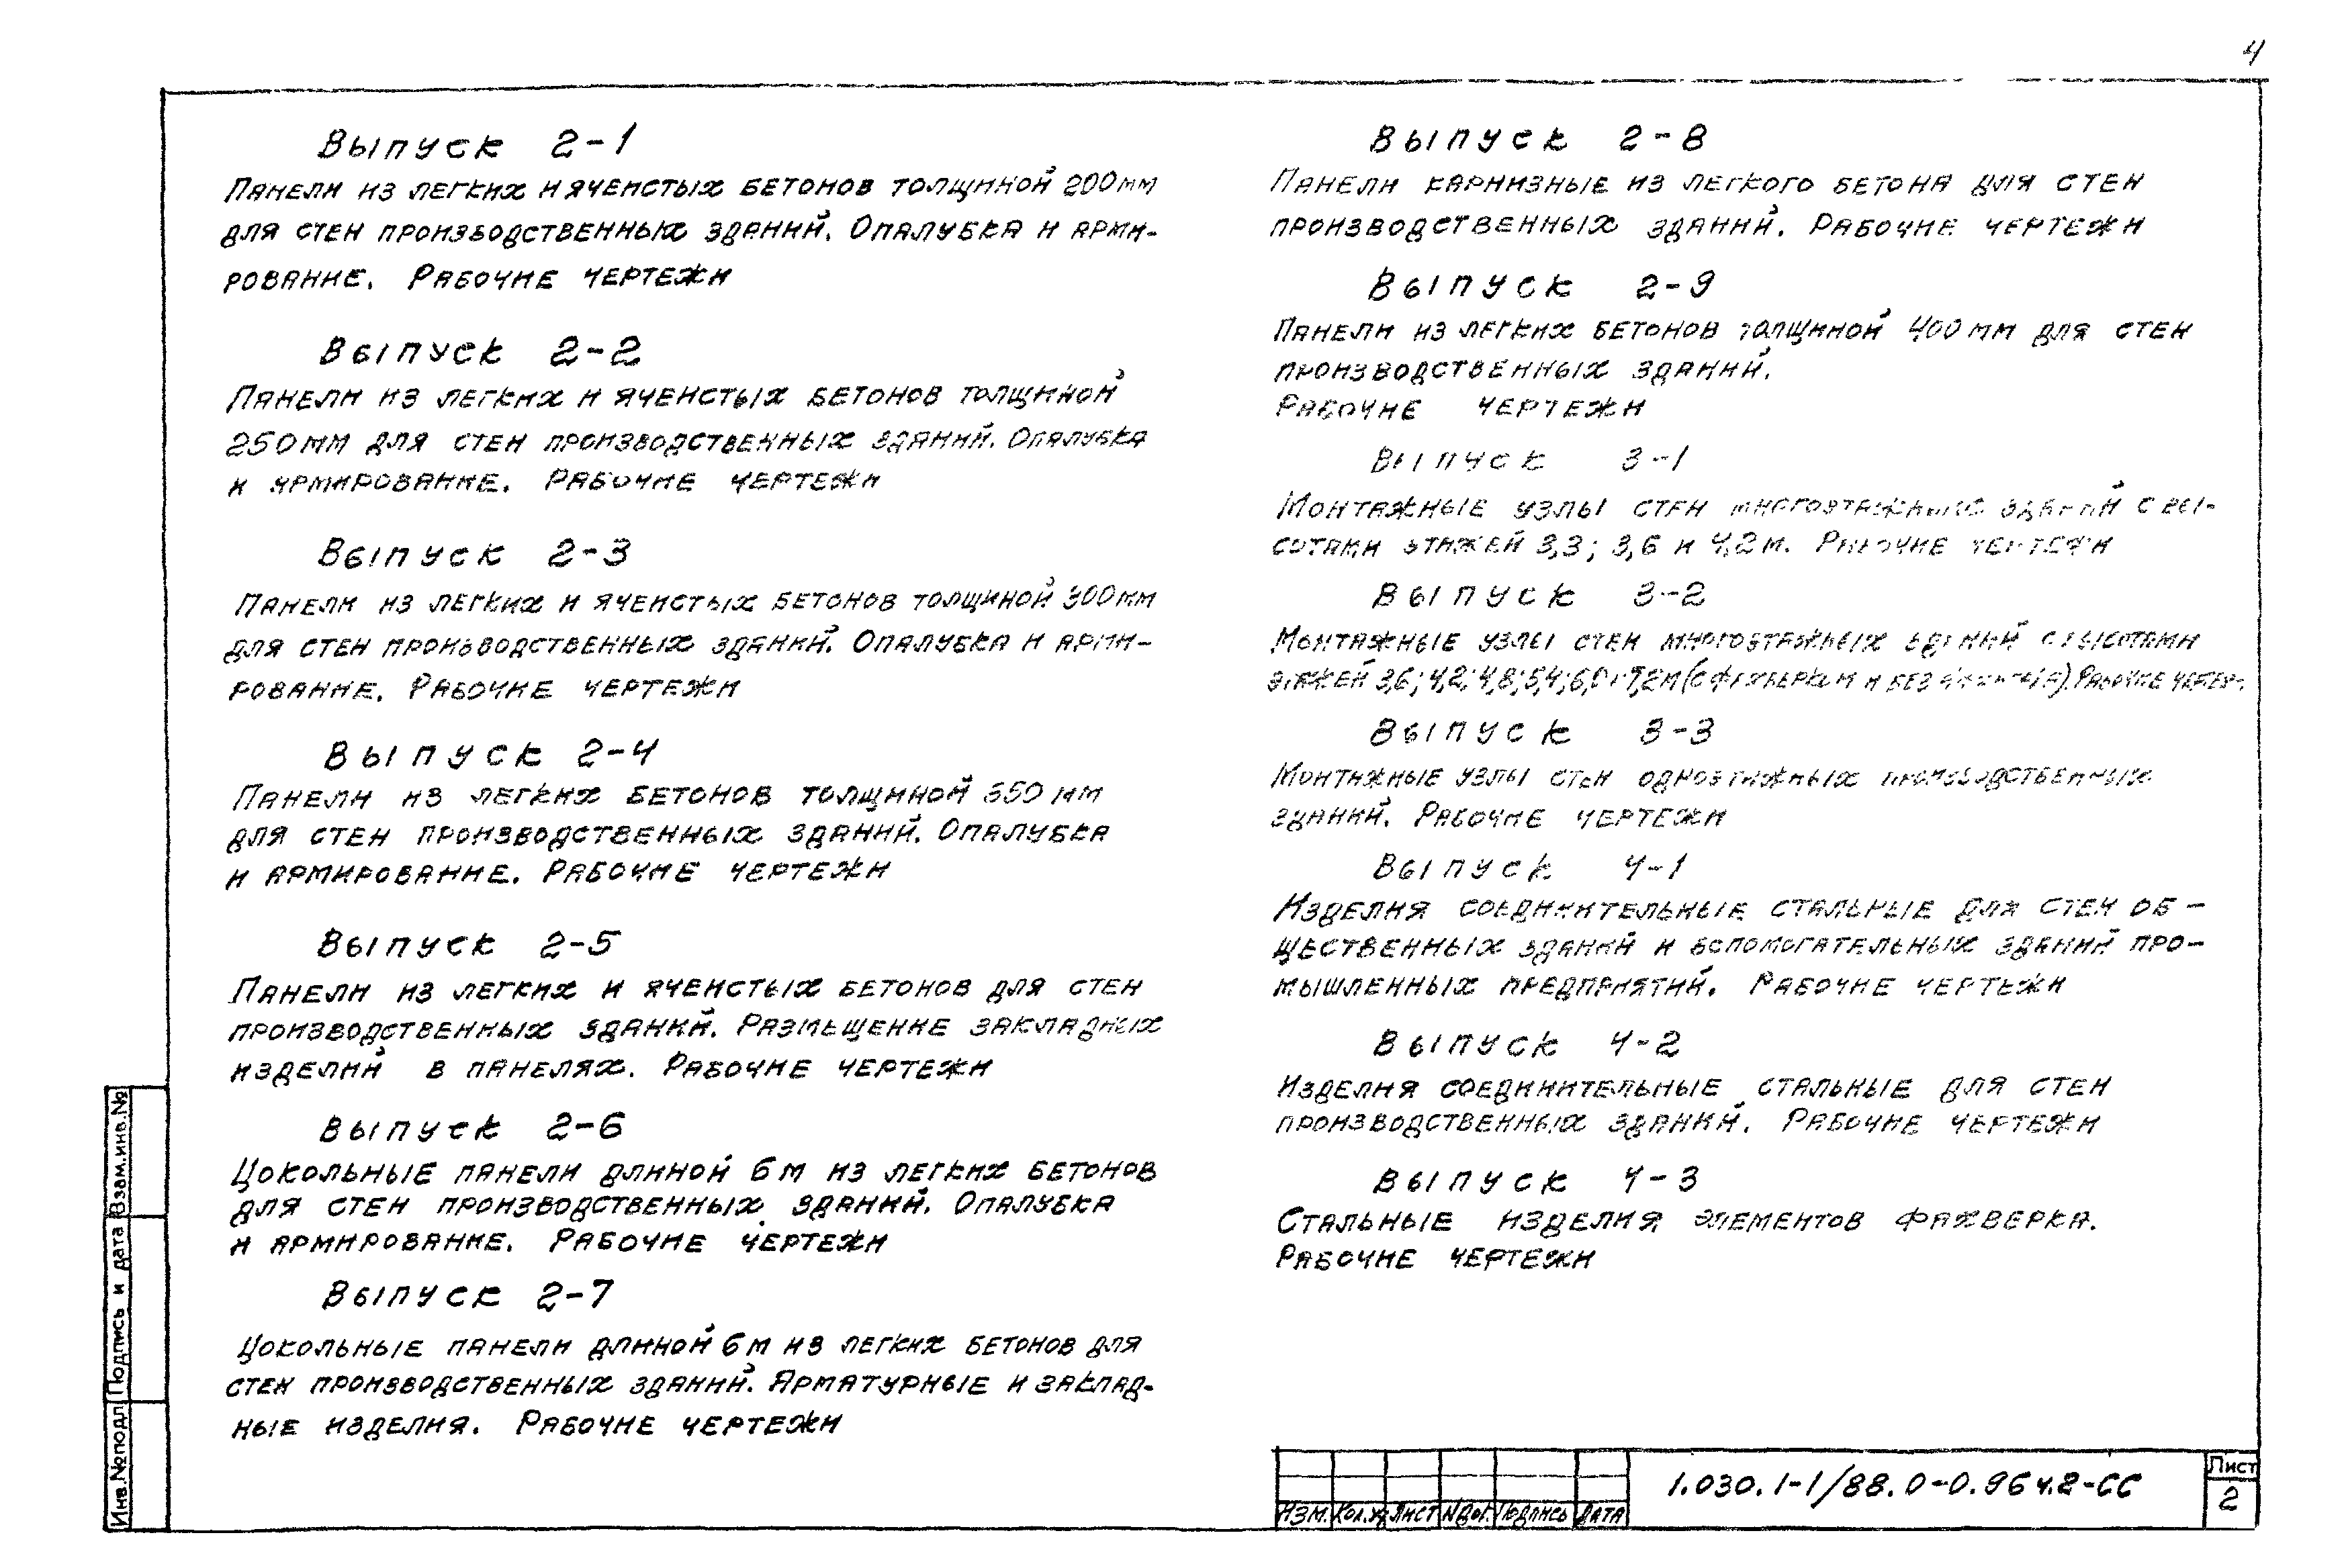 4
Выпуск 2-1
Панели из легких и ячеистых бетонов толщиной 200мм
для стен производственных зданий. Опалубка и арми-
рование. Рабочие чертежи
Выпуск 2-2
Панели из легких и ячеистых бетонов толщиной
250мм для стен производственных зданий. Опалубка
и армирование. Рабочие чертежи
Выпуск 2-3
Панели из легких и ячеистых бетонов толщиной 300мм
для стен производственных зданий. Опалубка и арми-
рование. Рабочие чертежи
Выпуск 2-4
Панели из легких бетонов толщиной 350 мм
для стен производственных зданий. Опалубка
и армирование. Рабочие чертежи
Выпуск 2-5
Панели из легких и ячеистых бетонов для стен
производственных зданий. Размещение закладных
изделий в панелях. Рабочие чертежи
Выпуск 2-6
Цокольные панели длиной 6м из легких бетонов
для стен производственных зданий. Опалубка
и армирование. Рабочие чертежи
Выпуск 2-7
Цокольные панели длиной 6м из легких бетонов для
стен производственных зданий. Арматурные и заклад-
ные изделия. Рабочие чертежи
Выпуск 2-8
Панели карнизные из легкого бетона для стен
производственных зданий. Рабочие чертежи
Выпуск 2-9
Панели из легких бетонов толщиной 400мм для стен
производственных зданий.
Рабочие чертежи
Выпуск 3-1
Монтажные узлы стен многоэтажных зданий с вы-
сотами этажей 3,3; 3,6 и 4,2м. Рабочие чертежи
Выпуск 3-2
Монтажные узлы стен многоэтажных зданий с высотами
этажей 3,6; 4,2; 4,8; 5,4; 6,0 и 7,2м (с фахверком и без фахверка). Рабочие
Выпуск 3-3
Монтажные узлы стен одноэтажных производственных
зданий. Рабочие чертежи
Выпуск 4-1
Изделия соединительные стальные для стен об-
щественных зданий и вспомогательных зданий про-
мышленных предприятий. Рабочие чертежи
Выпуск 4-2
Изделия соединительные стальные для стен
производственных зданий. Рабочие чертежи
Выпуск 4-3
Стальные изделия элементов фахверка.
Рабочие чертежи
Взам.инв.№
Подпись и дата
Инв.№подл
Изм. Кол.уч Лист Nдок. Подпись Дата
1.030.1-1/88.0-0.96ч.2-СС
Лист
2